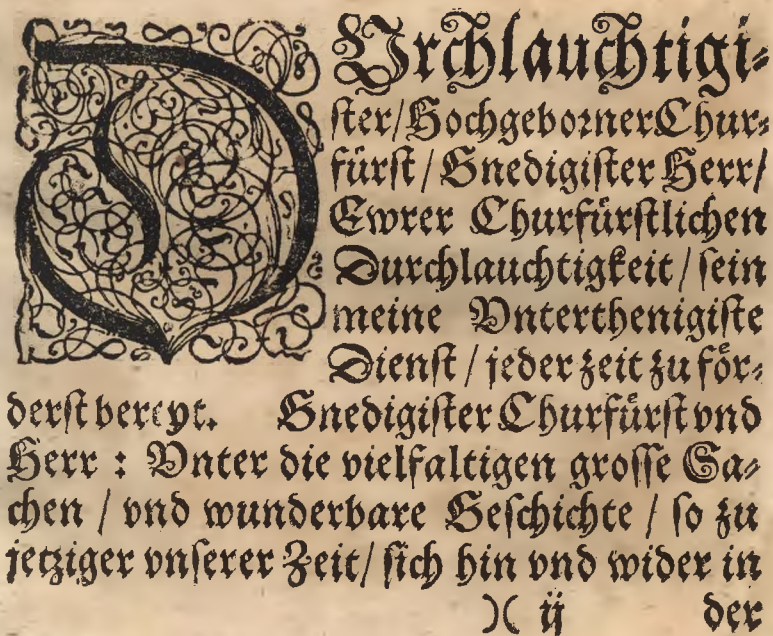 DUrchlauchtigi⸗
ſter/HochgebornerChur⸗
fürſt/Gnedigiſter Herr/
Ewrer Churfürſtlichen
Durchlauchtigkeit/ſein
meine Vnterthenigiſte
Dienſt/jeder zeit zu foͤr⸗
derſt bereyt. Gnedigiſter Churfürſt vnd
Herr : Vnter die vielfaltigen groſſe Sa⸗
chen / vnd wunderbare Geſchichte / ſo zu
jetziger vnſerer Zeit/ ſich hin vnd wider in
)( ij der